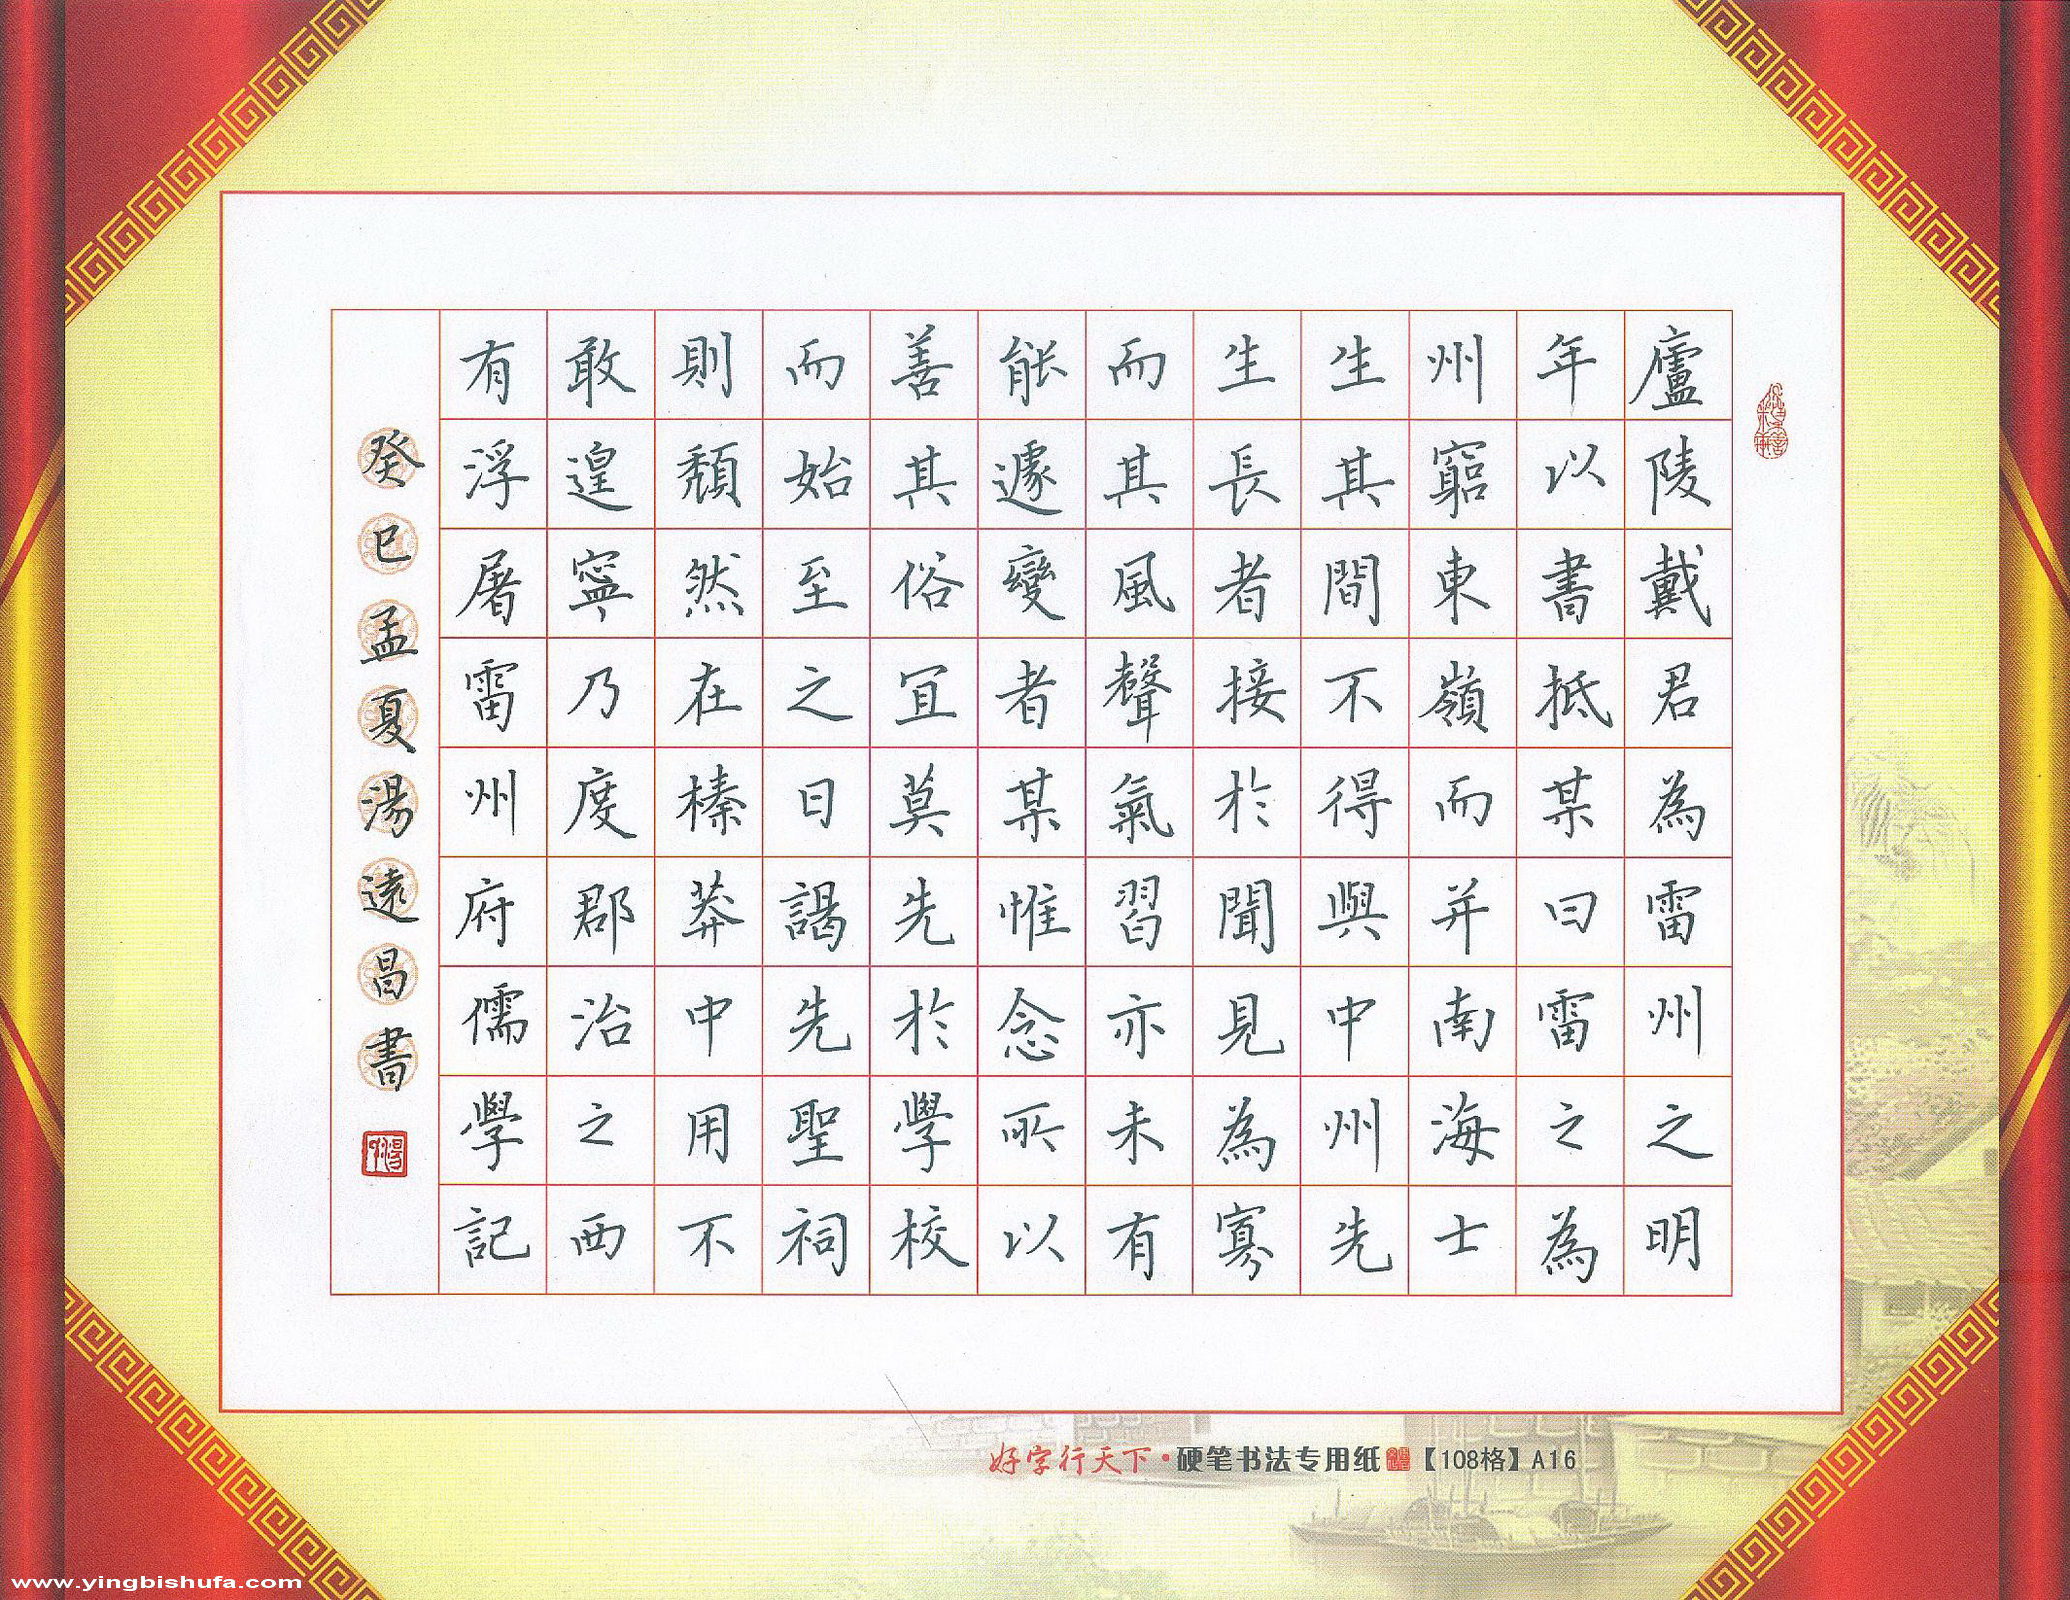 廬陵戴君為雷州之明
年以書抵某曰雷之為
州窮東嶺而并南海士
生其間不得與中州先
生長者接於聞見為寡
而其風聲氣習亦未有
能遽變者某惟念所以
善其俗冝莫先於學校
而始至之日謁先聖祠
則頽然在榛莽中用不
敢遑寧乃度郡治之西
有浮屠雷州府儒學記
癸巳孟夏湯遠昌書
好字行天下·硬笔书法专用纸【108格】A16
www.yingbishufa.com